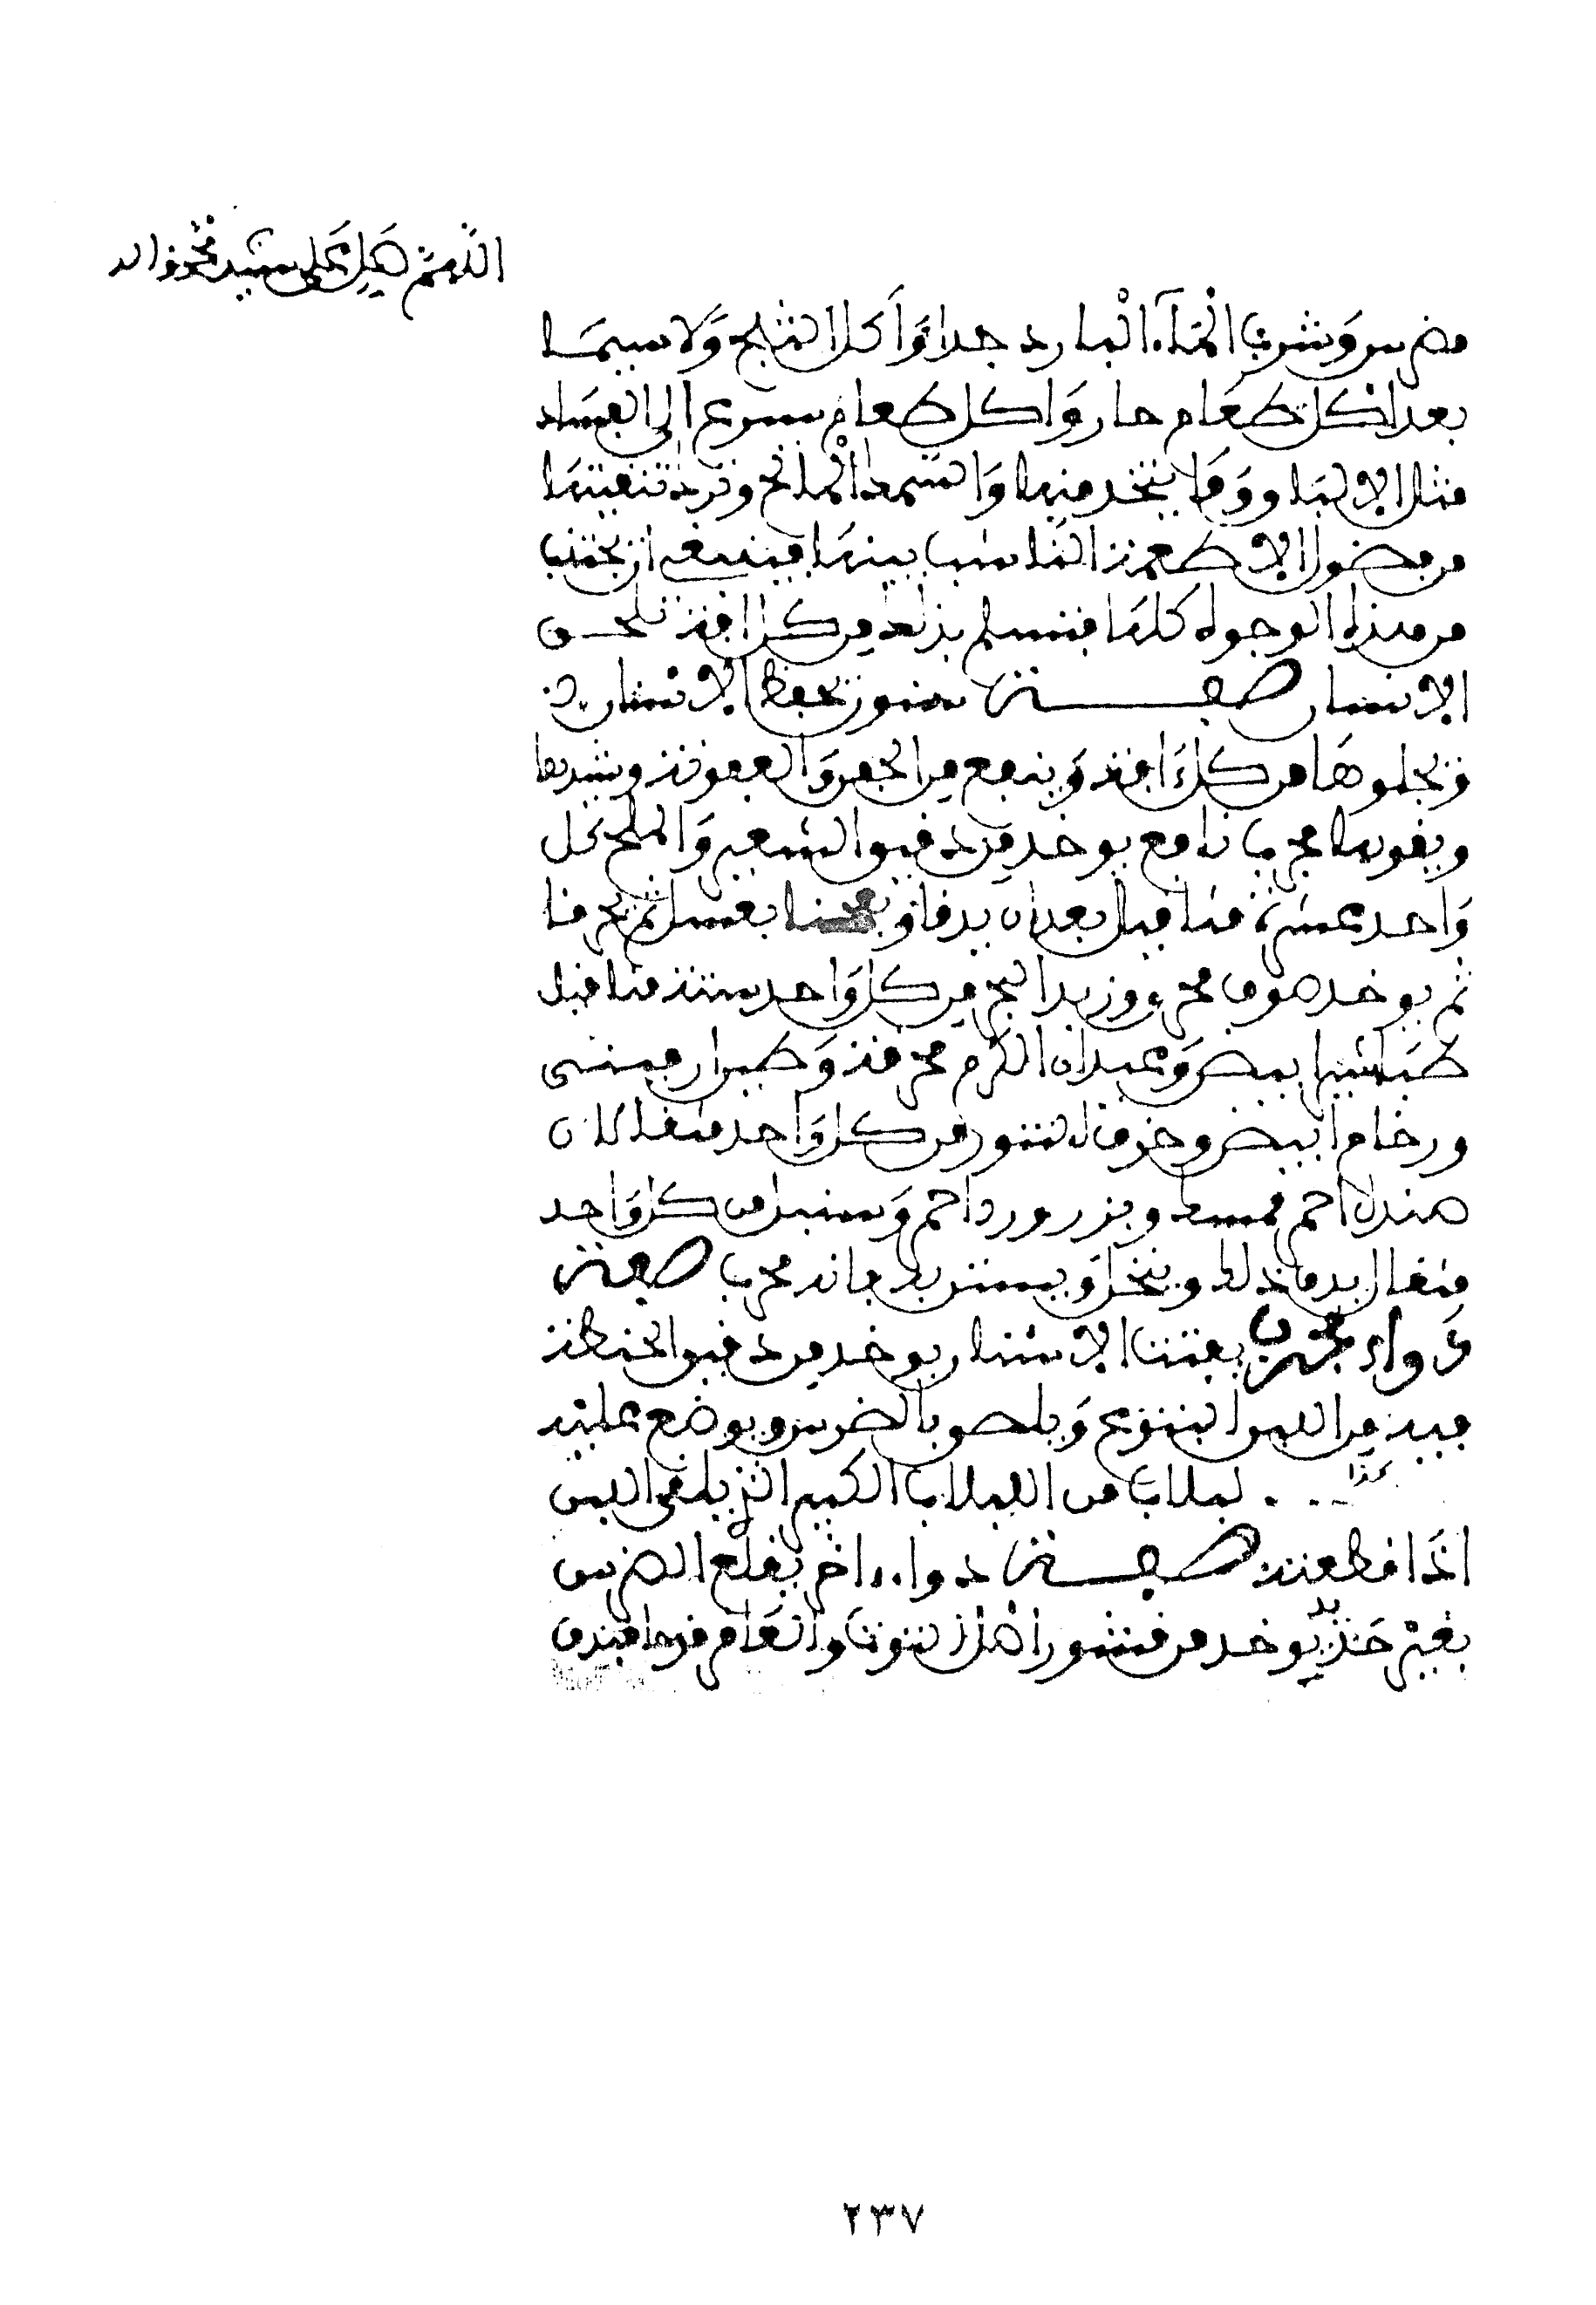 اللهم صل على سيدنا محمد وآله
مضرس وشرب المآء البارد جدا وَأكل الثلج وَلا سيما
بعد اكل طعَام حار وَاكل طعام سريع الى الفسَاد
مثل الالبَان وَمَا يتخذ منها وَالسمك المالح وترك تنقيتهَا
من فضول الاطعمة الناشب بينهَا فينبغي ان يجتنب
من هذه الوجوه كلهَا فتسلم بذلك من كل افة تلحق
الاسنان صفــة سنون يحفظ الاسنان
ويجلوهَا من كل ءَافة وَينفع من الحفر وَالعفونة ويشدها
ويقويها مجرب نافع يوخذ من دقيق الشعير وَالملح كل
وَاحد عشرة مثاقيل بعد ان يدقا ويعجنا بعسل ثم يحرقا
ثم يوخذ صوف محرق وزبد البحر من كل وَاحد ستة مثاقيل
طبَاشير ابيض وَعيدان الكرم محرقة وَطين ارميني
ورخام ابيض وخزف التنور من كل وَاحد مثقالان
صندل احمر وبزر ورد احمر وَسنبل من كل وَاحد
مثقال يدق ذلك وينخل وَيستن به فانه مجرب صفة
دَواء مجرب يفتت الاسنان يوخذ من دقيق الحنطة
فيه من اللبن اليتوع وَيلصق بالضرس ويوضع عليه
كذا
... لبلاب من اللبلاب الكبير الذي يلقى اللبن
اذَا قطعته صفــة دواء اخر يقلع الضرس
بغيْر حَديد يوخذ من قشور اصل التوت وَالعَاقر قرحا فيدق
٢٣٧